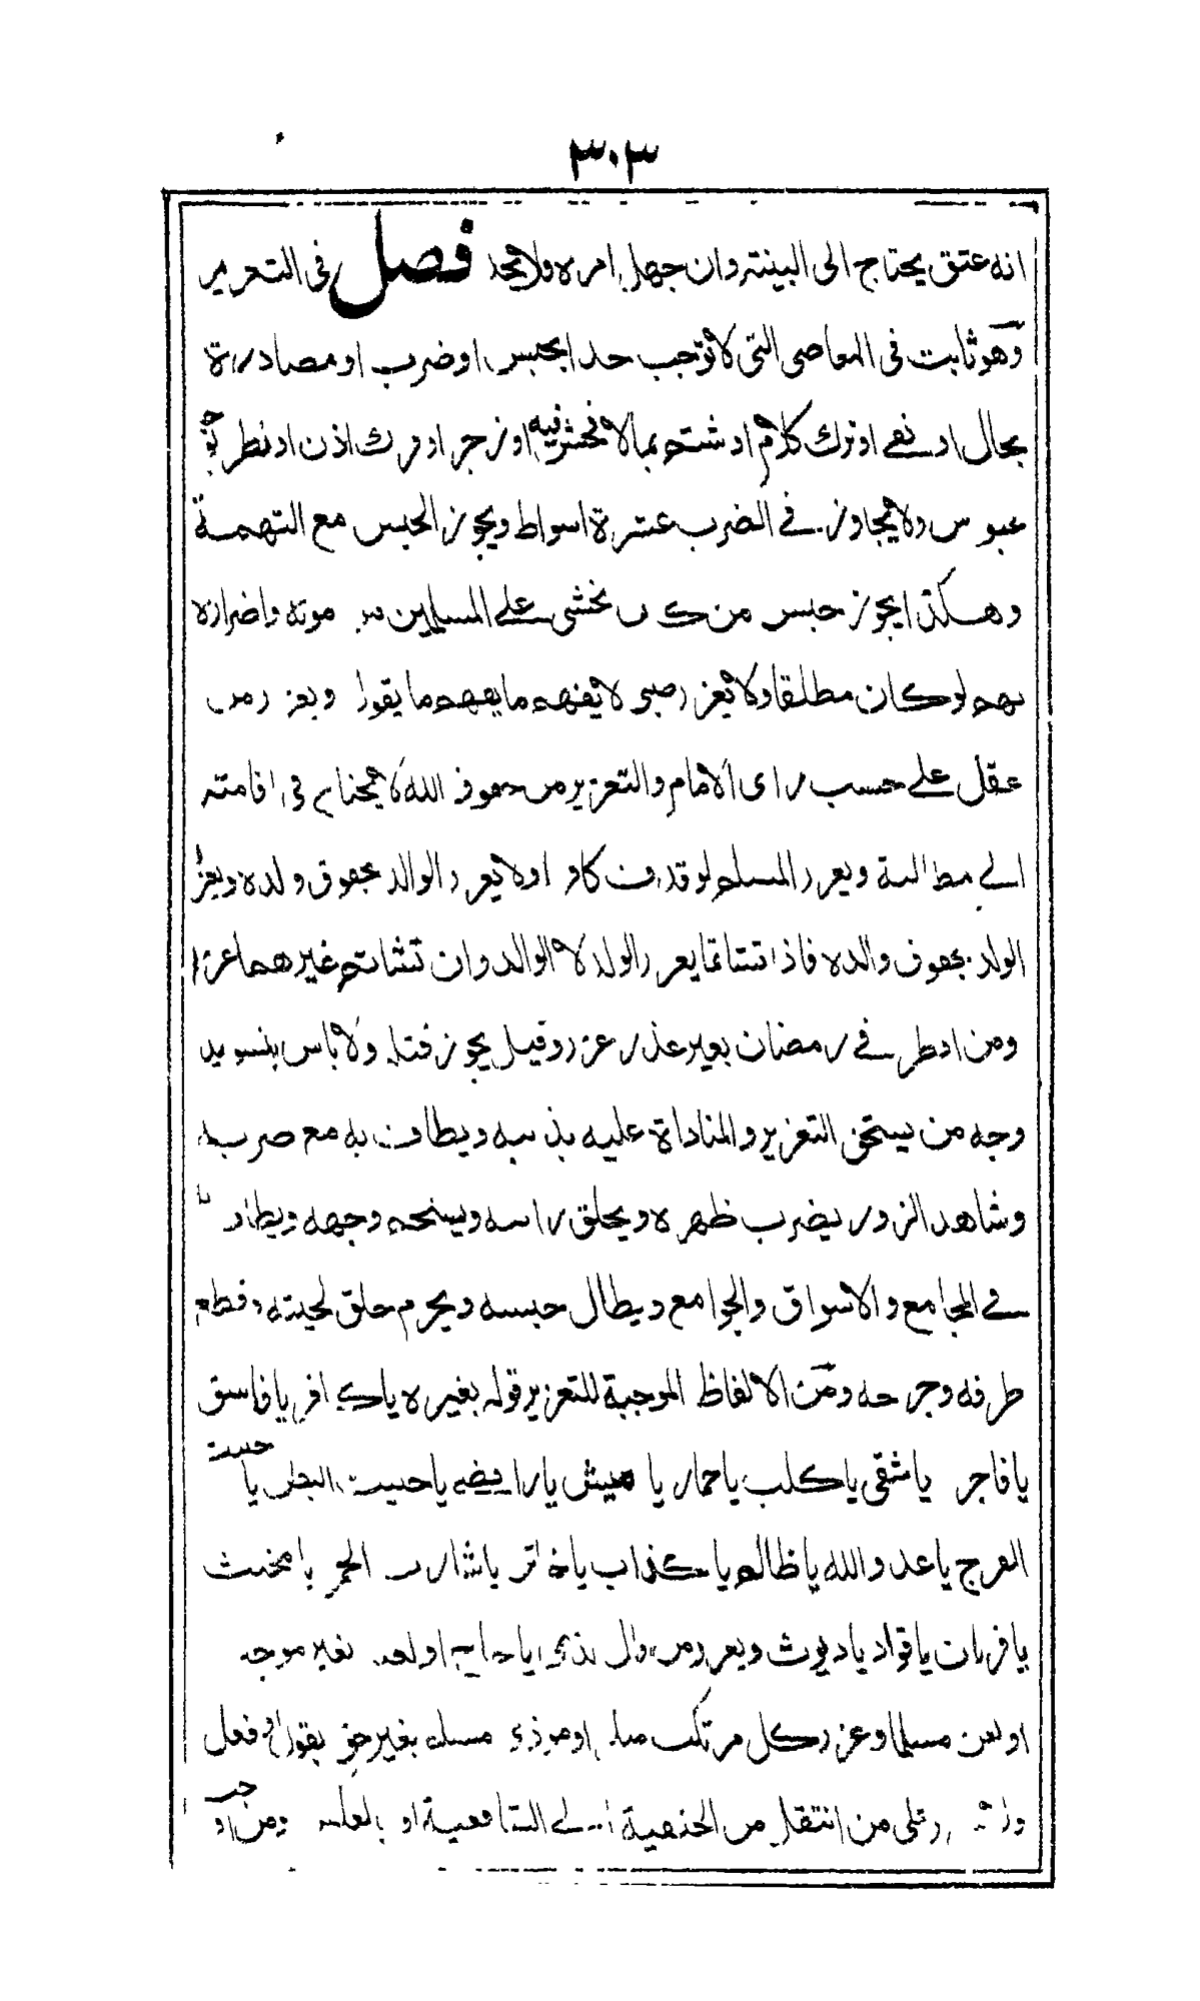 ٣٠٣
انه عتق يحتاج الى البينة وان جهل امره ولا يحد فصل فى التعزير
وهو ثابت فى المعاصى التى لا توجب حدا بحبس او ضرب او مصادرة
بمال او نفى او ترك كلام او شتم بما لا فحش فيه او زجر او فرك اذن او نظر بوجه
عبوس ولا يجاوز فى الضرب عشرة اسواط ويجوز الحبس مع التهمة
وهكذا يجوز حبس من يخشى على المسلمين من واضراره
بهم لو كان مطلقا ولا يعزر صبى لا يفهم ما يقول ويعزر من
عقل على حسب راى الامام والتعزير من حقوق الله لا يحتاج فى اقامته
الى مطالبة ويعزر المسلم لو قذف كافرا ولا يعزر الوالد بحقوق ولده ويعزر
الولد بحقوق والده فاذا تشاتما يعزر الولد لا الوالد وان تشاتم غيرهما عزرا
ومن افطر فى رمضان بغير عذر عزر وقيل يجوز قتله ولا باس بتسويد
وجه من يستحق التعزير والمناداة عليه بذنبه ويطاف به مع ضربه
وشاهد الزور يضرب ظهره ويحلق راسه ويسخم وجهه ويطاف به
فى المجامع والاسواق والجوامع ويطال حبسه ويحرم حلق لحيته وقطع
طرفه وجرحه ومن الالفاظ الموجبة للتعزير قوله بغيره يا كافر يا فاسق
يا فاجر يا شقى يا كلب يا حمار يا يا رافضى يا خبيث البطن يا خبيث
الفرج يا عدو الله يا ظالم يا كذاب يا خائن يا شارب الخمر يا مخنث
يا قرنان يا قواد يا ديوث ويعزر من قال يا حاج او بغير موجب
او لعن مسلما وعزر كل مرتكب او موذى مسلم بغير حق بقول او فعل
من انتقل من الحنفية الى الشافعية او بالعكس ومن اوجب